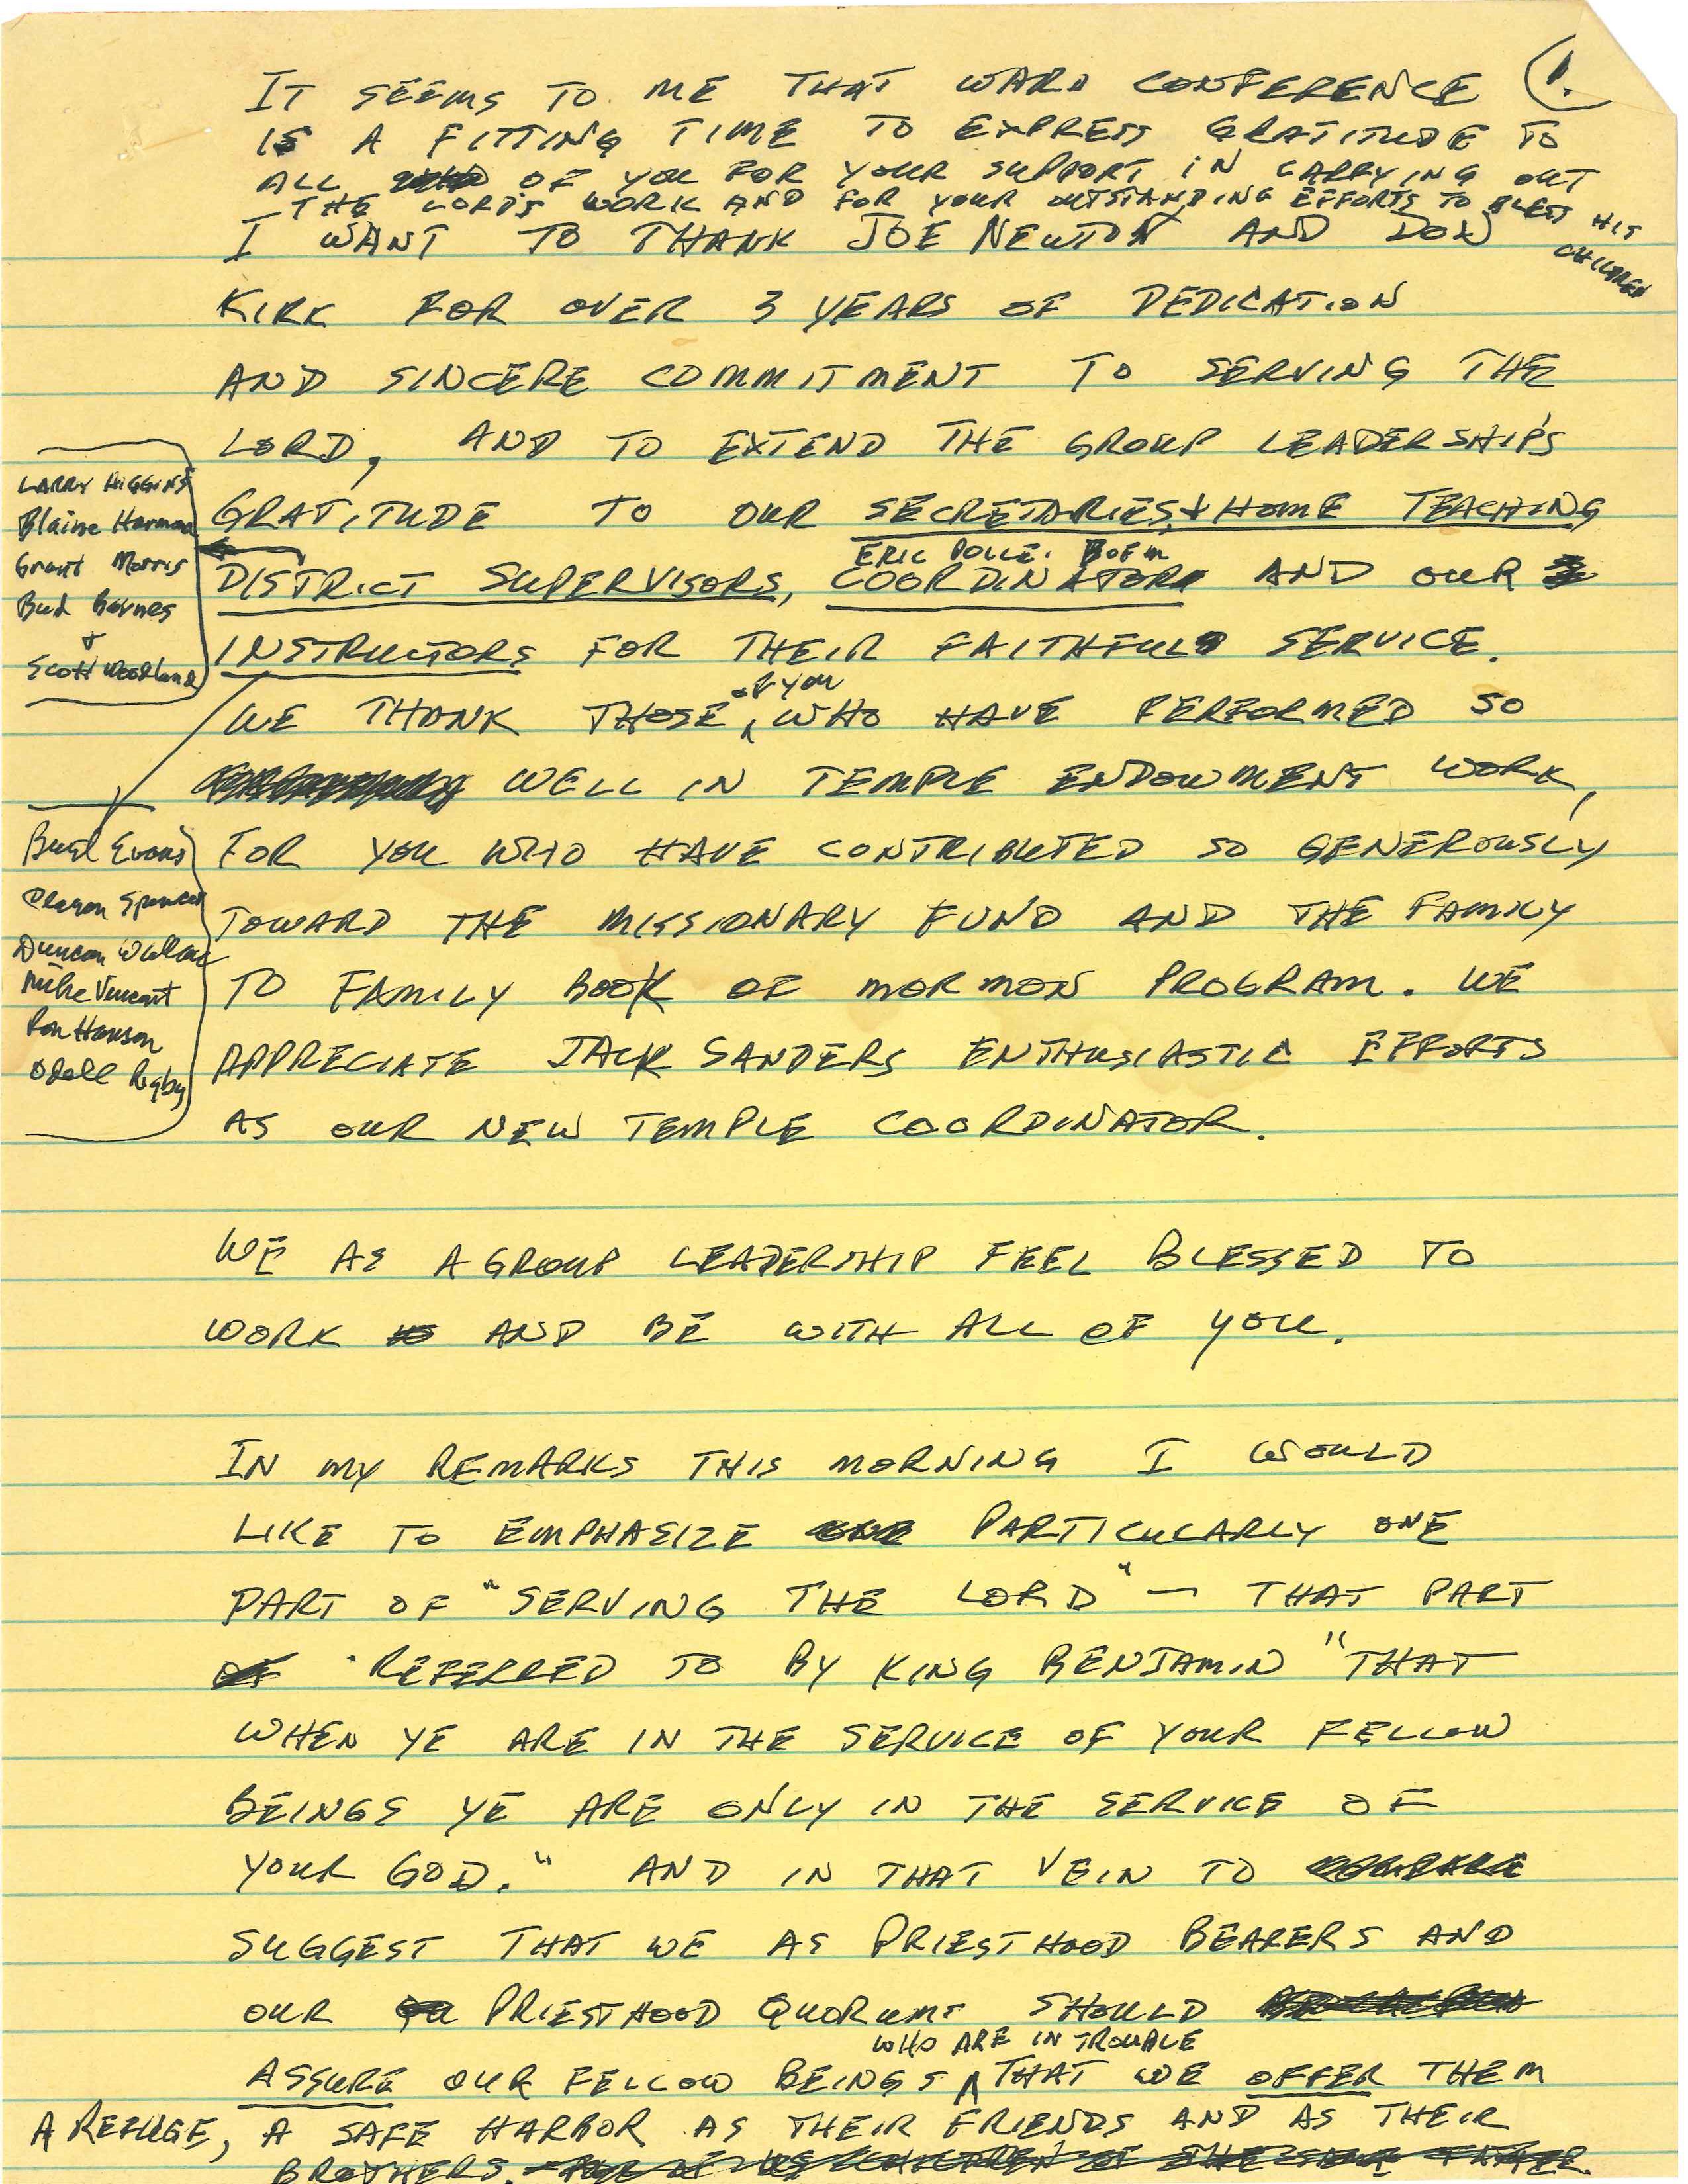 1.
IT SEEMS TO ME THAT WARD CONFERENCE
IS A FITTING TIME TO EXPRESS GRATITUDE TO
ALL OF YOU FOR YOUR SUPPORT IN CARRYING OUT
THE LORD'S WORK AND FOR YOUR OUTSTANDING EFFORTS TO BLESS HIS
CHILDREN
I WANT TO THANK JOE NEWTON AND DON
KIRK FOR OVER 3 YEARS OF DEDICATION
AND SINCERE COMMITMENT TO SERVING THE
LORD, AND TO EXTEND THE GROUP LEADERSHIP'S
GRATITUDE TO OUR SECRETARIES & HOME TEACHING
ERIC B OF M
DISTRICT SUPERVISORS, COORDINATOR AND OUR
INSTRUCTORS FOR THEIR FAITHFUL SERVICE.
of you
WE THANK THOSE, WHO HAVE PERFORMED SO
WELL IN TEMPLE ENDOWMENT WORK,
FOR YOU WHO HAVE CONTRIBUTED SO GENEROUSLY
TOWARD THE MISSIONARY FUND AND THE FAMILY
TO FAMILY BOOK OF MORMON PROGRAM. WE
APPRECIATE JACK SANDERS ENTHUSIASTIC EFFORTS
AS OUR NEW TEMPLE COORDINATOR.
LARRY HIGGINS
Blaine Harmon
Grant Morris
Bud Barnes
+
Scott Woodland
Evans
Spencer
Duncan Wallace
Mike Vincent
Ron Hanson
Odell Rigby
WE AS A GROUP LEADERSHIP FEEL BLESSED TO
WORK AND BE WITH ALL OF YOU.
IN MY REMARKS THIS MORNING I WOULD
LIKE TO EMPHASIZE PARTICULARLY ONE
PART OF "SERVING THE LORD" — THAT PART
REFERRED TO BY KING BENJAMIN "THAT
WHEN YE ARE IN THE SERVICE OF YOUR FELLOW
BEINGS YE ARE ONLY IN THE SERVICE OF
YOUR GOD." AND IN THAT VEIN TO
SUGGEST THAT WE AS PRIESTHOOD BEARERS AND
OUR PRIESTHOOD QUORUMS SHOULD
WHO ARE IN TROUBLE
ASSURE OUR FELLOW BEINGS THAT WE OFFER THEM
A REFUGE, A SAFE HARBOR AS THEIR FRIENDS AND AS THEIR
BROTHERS.